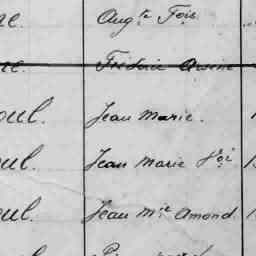 Augte Fois
Frédéric Arsène
oul. Jean Marie.
oul. Jean Marie Foi
oul. Jean Mie Amond